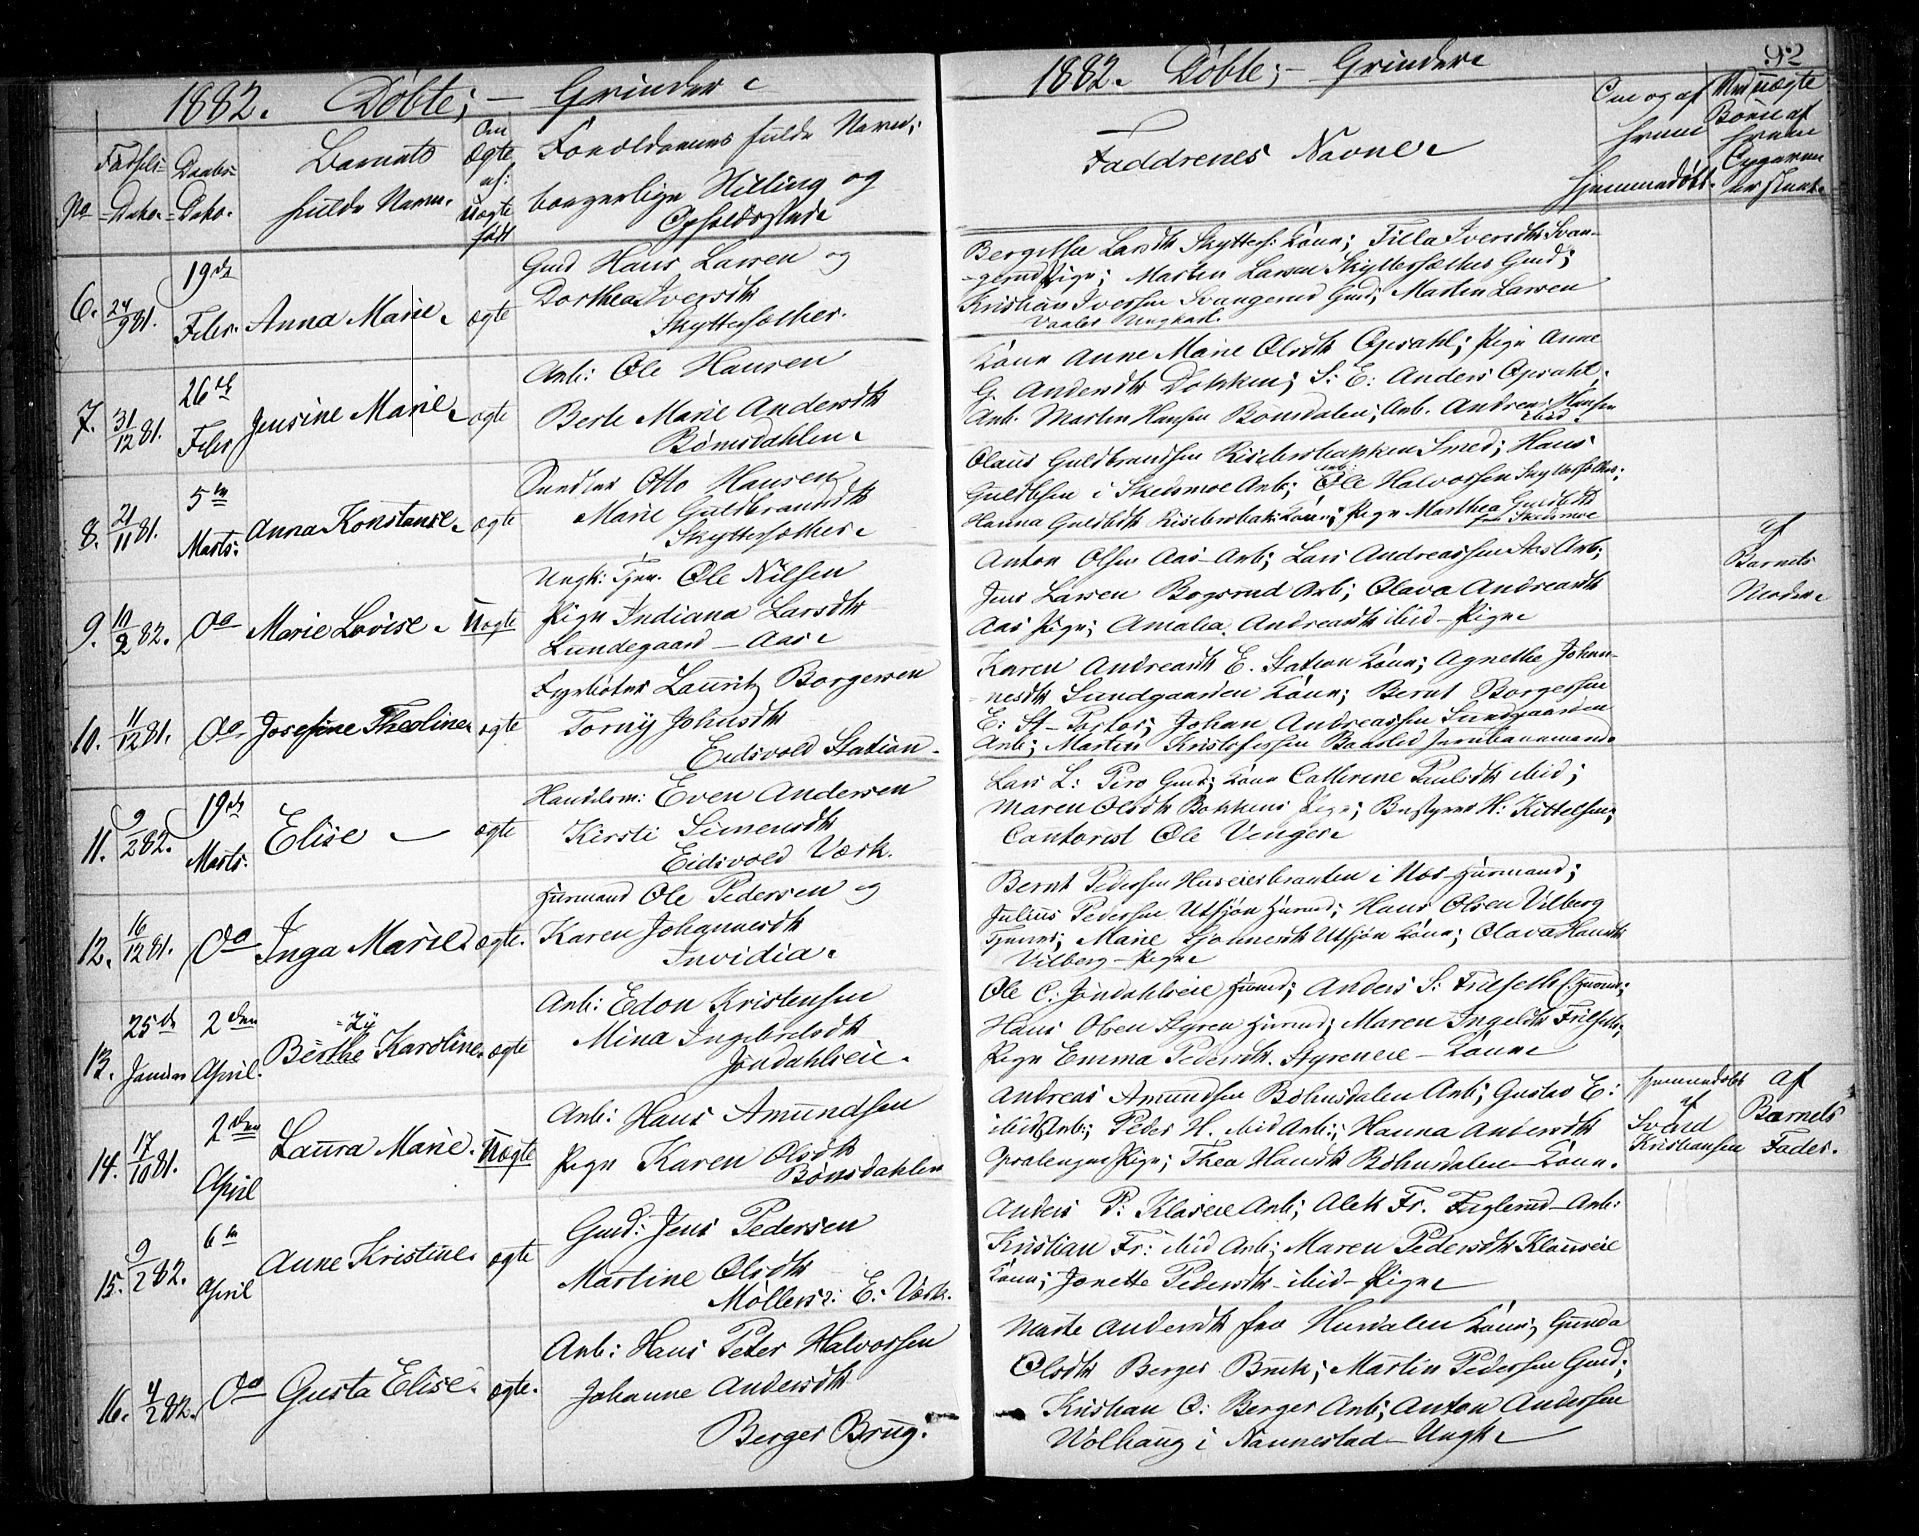 1882. Døbte; – Qvinder
No
Fødsels-
Dato.
Daabs-
Dato.
Barnets
fulde Navn.
Om
Ægte
el:
Uægte
født
Forældrenes fulde Navn,
borgerlige Stilling og
Opholdssted
6. 24/9 81.
19de
Febr.
Anna Marie
ægte
Gmd Hans Larsen og
Dorthea Iversdtr
Skyttersæther.
7. 31/12 81.
26de
Febr
Jensine Marie
ægte
Arb: Ole Hansen
Berte Marie Andersdtr
Bønsdahlen
8. 21/11 81.
5te
Marts:
Anna Konstanse
ægte
Otto Hansen
Marie Guldbrandsdtr
Skyttersæther
9. 10/2 82.
Do
Marie Lovise
Uægte
Ungk: Tjen. Ole Nilsen
Pige Indiana Larsdtr
Lundegaard – Aas
10. 11/12 81.
Do
Josefine Theoline
ægte
Fyrbøter Lauritz Borgersen
Torny Johnsdtr
Eidsvold Station
11. 9/2 82.
19de
Marts.
Elise
ægte
Handelsm: Even Andersen
Kirsti Simensdtr
Eidsvold Værk.
12. 16/12 81.
Do
Inga Marie
ægte.
Husmand Ole Pedersen og
Karen Johannesdtr
Invidia
13.
25de
Januar
2den
April.
Berthe Karoline
ægte
Arb: Edon Kristensen
Mina Ingebretsdtr
Jøndahlseie
14. 17/10 81.
2den
April
Laura Marie
Uægte
Arb: Hans Amundsen
Pige Karen Olsdtr
Bønsdahlen
15. 9/2 82.
6te
April
Anne Kristine
ægte
Gmd: Jens Pedersen
Martine Olsdtr
E: Værk.
16. 4/2 82.
Do
Gusta Elise
ægte.
Arb: Hans Peter Halvorsen
Johanne Andersdtr
Berger Brug.
92
1882. Døbte; – Qvinder
Faddrenes Navne
Om og af
hvem
hjemmedøbt.
Ved uægte
Børn af
hvem
Opgaven
er skeet.
Larsdtr Kone; Iversdtr Svan-
gerud Pige; Martin Larsen Skyttersæther Gmd;
Kristian Iversen Svangerud Gmd; Martin Larsen
Ungkarl.
Kone Anne Marie Olsdtr Opsahl; Pige Anne
G. Andersdtr Dokken; S: E: Anders Opsahl;
Arb. Martin Hansen Bønsdalen; Arb. Andreas Hansen
ibid.
Olaus Guldbrandsen Smed; Hans
Guldbsen i Skedsmo Arb; Ole Halvorsen Skyttersæther;
Hanna Guldbdtr Kone; Pige Marthea Guldbdtr
fra Skedsmo
Anton Olsen Aas Arb; Lars Andreassen Aas Arb;
Jens Larsen Bogsrud Arb; Olava Andreasdtr
Aas Pige; Amalia Andreasdtr ibid – Pige
af
Barnets
Moder
Karen Andreasdtr E. Station Kone; Agnethe Johan-
nesdtr Sundgaarden Kone; Bernt Borgersen
E: St – Portør; Johan Andreassen Sundgaarden
Arb; Martin Kristofersen Jernbanemand
Lars L: Piro Gmd; Kone Cathrine Paulsdtr ibid;
Maren Olsdtr Bakkens Pige; Bestyrer H. Kittelsen;
Cantorist Ole Venger
Bernt Pedersen i Nes Husmand;
Julius Pedersen Utsjøn Husmd; Hans Olsen Vilberg
Tjener; Marie Utsjøn Kone; Olava Hansdtr
Vilberg – Pige
Ole C: Jøndahlseie Husmd; Anders S: Trulseth Husmd;
Hans Olsen Styren Husmd; Maren Ingebdtr Trulseth;
Pige Emma Pedersdtr. Styreneie – Kone
Andreas Amundsen Bøhnsdalen Arb; Gustav E:
ibid Arb; Peder H. ibid Arb; Hanna Andersdtr
Pige; Thea Hansdtr Bøhnsdalen – Kone.
hjemmedøbt
af
Kristiansen
af
Barnets
Fader.
Anders P: Arb; Fr. – Arb:
Kristian Fr: ibid Arb; Maren Pedersdtr Klauseie
Kone; Jonette Pedersdtr – ibid – Pige
Marte Andersdtr fra Hurdalen Kone; Gunda
Olsdtr Berger Bruk; Martin Pedersen Gmd;
Kristian O: Berger Arb; Anton Andersen
Wolhaug i Nannestad – Ungk